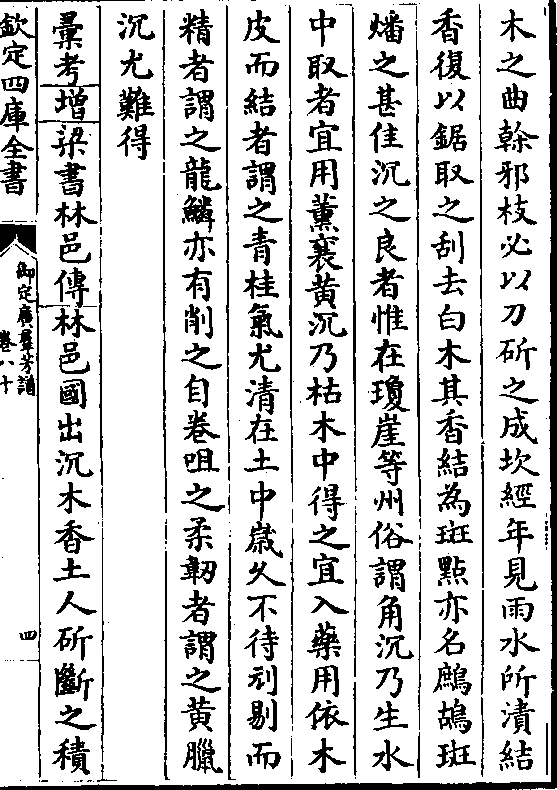 木之曲榦邪枝必以刀斫之成坎經年見雨水所漬結
香復以鋸取之刮去白木其香結為斑點亦名鷓鴣斑
燔之甚佳沉之良者惟在瓊崖等州俗謂角沉乃生水
中取者宜用薰裛黄沉乃枯木中得之宜入藥用依木
皮而結者謂之青桂氣尤清在土中歲久不待刓剔而
精者謂之龍鱗亦有削之自卷咀之柔韌者謂之黄臘
沉尤難得
彚考增梁書林邑傳林邑國出沉木香土人斫斷之積
欽定四庫全書
御定廣羣芳譜
卷八十
四